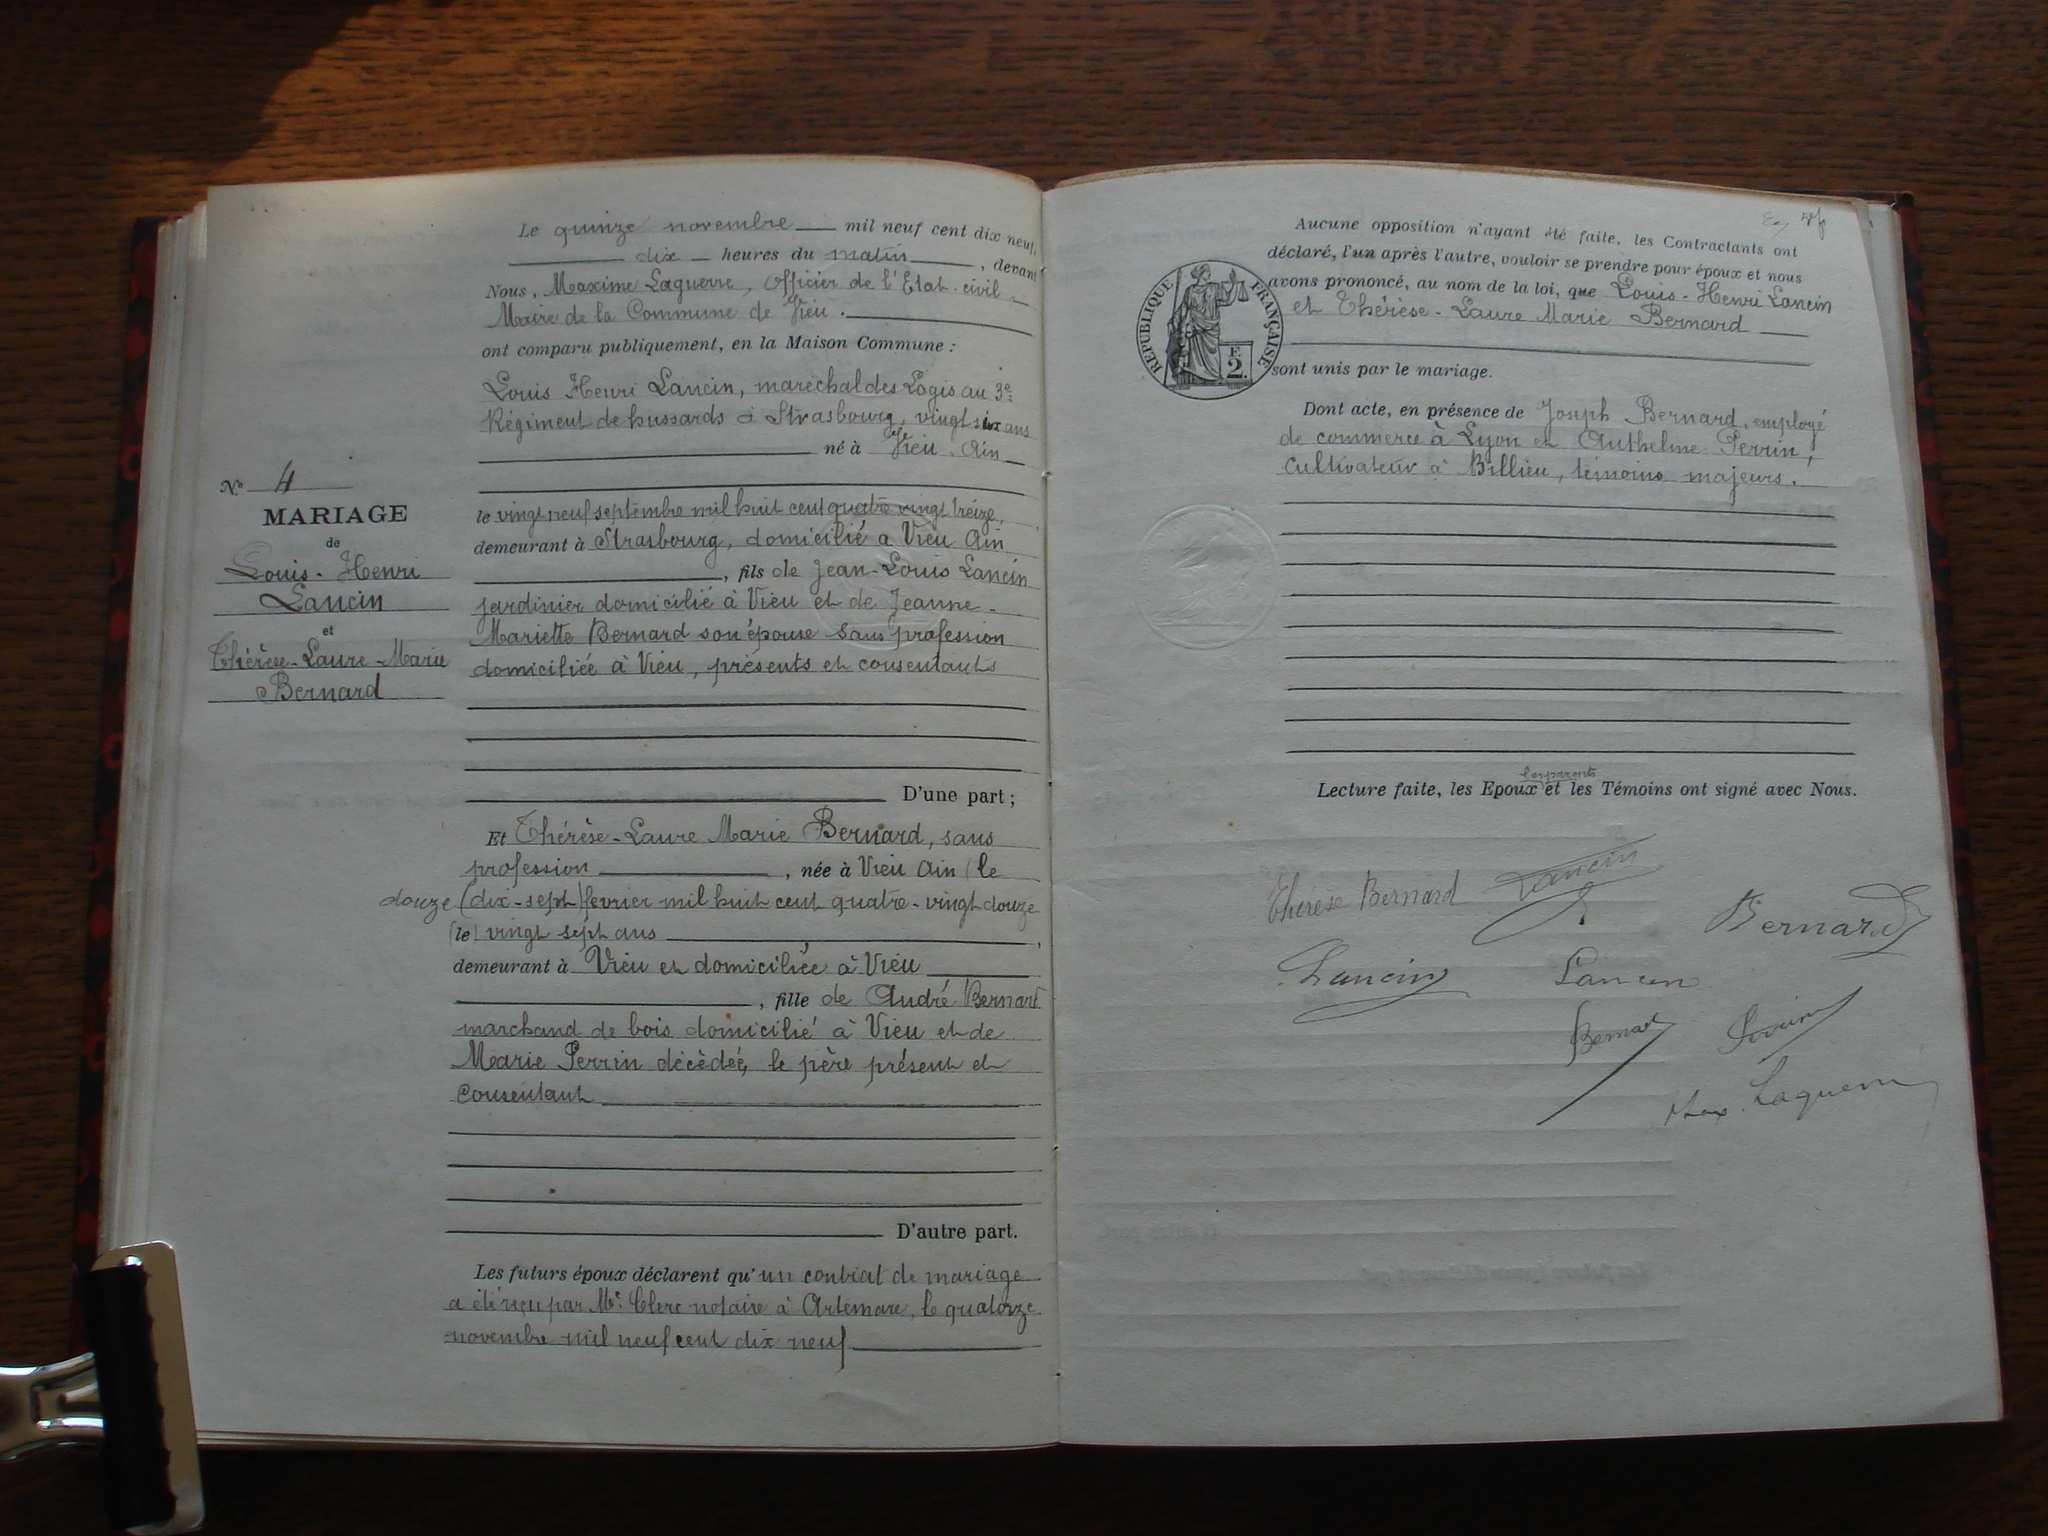 Le quinze novembre mil neuf cent dix neuf,
dix heures du matin, devant
Nous, Maxime Laguerre, Officier de l'Etat-civil
Maire de la Commune de Vieu.
ont comparu publiquement, en la Maison Commune :
Louis Henri Lancin, maréchal des Logis au 3e
Régiment de hussards à Strasbourg, vingt six ans
né à Vieu. Ain
le vingt neuf septembre mil huit cent quatre vingt treize,
demeurant à Strasbourg, domicilié à Vieu Ain
, fils de Jean-Louis Lancin
jardinier domicilié à Vieu et de Jeanne-
Mariette Bernard son épouse sans profession
domiciliée à Vieu, présents et consentants
D'une part ;
No 4
MARIAGE
de
Louis-Henri
Lancin
et
Thérèse-Laure-Marie
Bernard
Et Thérèse-Laure Marie Bernard, sans
profession , née à Vieu Ain (le
douze (dix-sept) février mil huit cent quatre-vingt douze
(le) vingt sept ans ,
demeurant à Vieu et domiciliée à Vieu
, fille de André Bernard
marchand de bois domicilié à Vieu et de
Marie Perrin décédée, le père présent et
consentant
D'autre part.
Les futurs époux déclarent qu'un contrat de mariage
a été reçu par Me Clerc notaire à Artemare, le quatorze
novembre mil neuf cent dix neuf
Aucune opposition n'ayant été faite, les Contractants ont
déclaré, l'un après l'autre, vouloir se prendre pour époux et nous
avons prononcé, au nom de la loi, que Louis-Henri Lancin
et Thérèse-Laure Marie Bernard
sont unis par le mariage.
RÉPUBLIQUE FRANÇAISE
F.
2.
Dont acte, en présence de Joseph Bernard, employé
de commerce à Lyon et Anthelme Perrin,
Cultivateur à Billieu, témoins majeurs.
les parents
Lecture faite, les Epoux et les Témoins ont signé avec Nous.
Thérèse Bernard Lancin
Bernard
Lancin Lancin
Bernard Perrin
Max. Laguerre